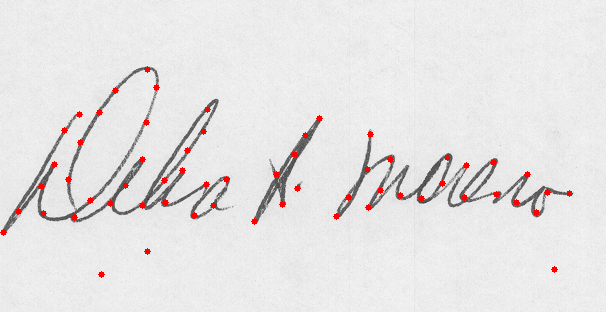 Delia A. Moreno